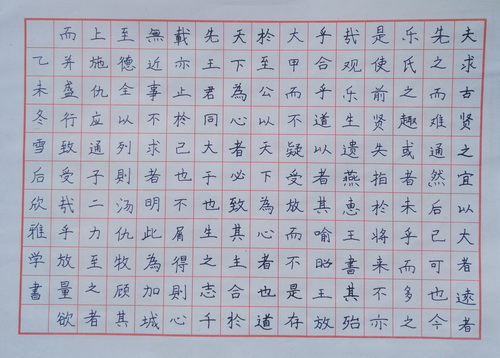 夫求古贤之宜以大者逺者
先之而难通然后已可也今
乐氏之趣或者未乎而多之
是使前贤失指於将来不亦
哉观乐生遗燕惠王書其殆
乎合乎道以者其喻昭王放
大甲而不疑受放而不是存
於至公以天下為心者也道
天下為心者必致其主合於
先王君同大于也生之志千
載亦止於己也不屑得則心
無近事不求者明此為加城
至德全以列則汤仇牧顾其
上施仇应通子二力至之者
而并盛行致受哉乎放量欲
乙未冬雪后欣雅学書